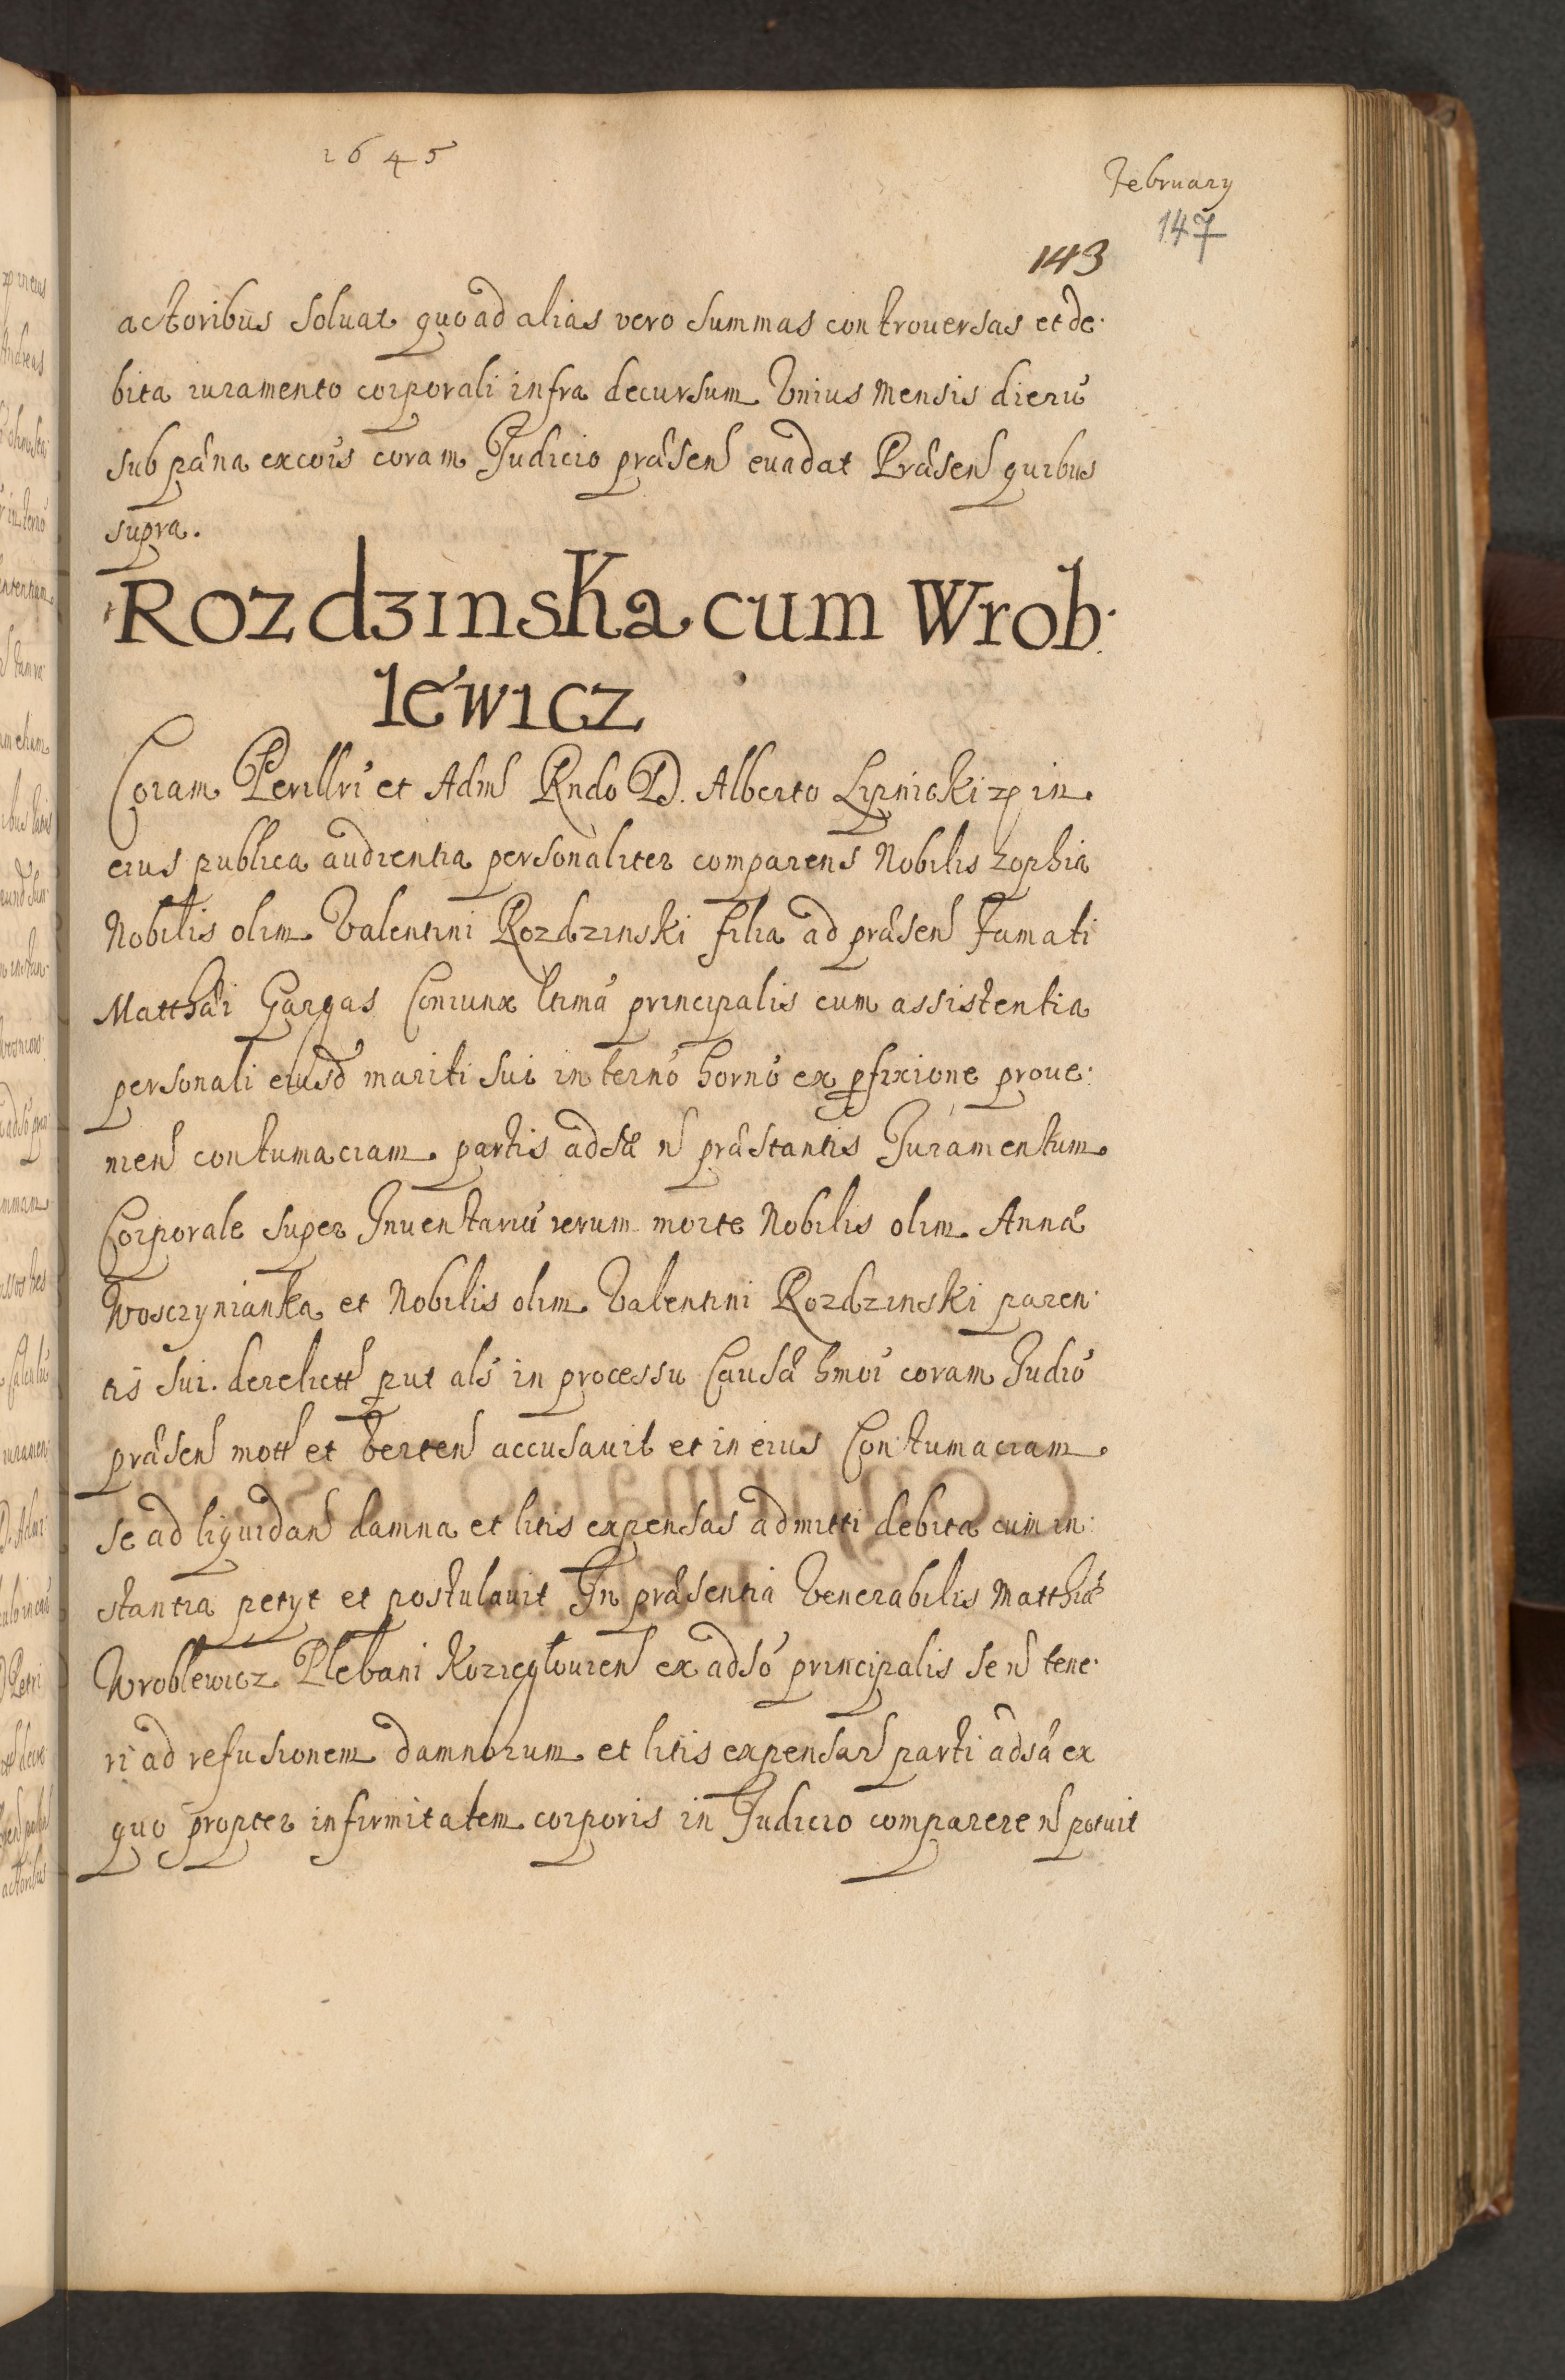 1645
February
147
143
actoribus soluat quo ad alias vero summas controuersas et de
bita iuramento corporali infra decursum Vnius Mensis dierú
sub pæna excois coram Judicio præsen euadat Præsen quibus
supra.
Rozdzinska cum Wrob
lewicz
Coram Perillri et Adm Rndo D. Alberto Lipnicki zp in
eius publica audientia personaliter comparens Nobilis Zophia
Nobilis olim Valentini Rozdzinski filia ad præsen Famati
Matthæi Gargas Coniunx ltima principalis cum assistentia
personali eiusd mariti sui in termo horno ex pfixione proue
nien contumaciam partis adsæ n præstantis Juramentum
Corporale super Inuentariú rerum morte Nobilis olim Annæ
Wosczynianka et Nobilis olim Valentini Rozdzinski paren
tis sui. derelictt put als in processu Causæ hmoi coram Judio
præsen mott et verten accusauit et in eius Contumaciam
se ad liquidan damna et litis expensas admitti debita cum in
stantia petyt et postulauit In præsentia Venerabilis Matthiæ
Wroblewicz Plebani Koziegłouien ex adso principalis se n tene
ri ad refusionem damnorum et litis expensar parti adsæ ex
quo propter infirmitatem corporis in Judicio comparere n potuit